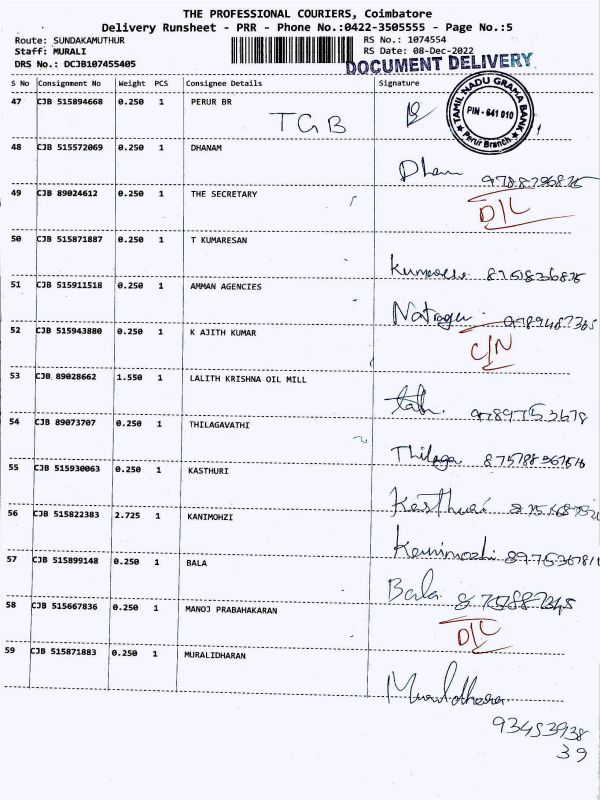 THE PROFESSIONAL COURIERS, Coimbatore
Delivery Runsheet - PRR - Phone No.:0422-3505555 - Page No.:5
Route: SUNDAKAMUTHUR RS No.: 1074554
Staff: MURALI RS Date: 08-Dec-2022
DRS No.: DCJB107455405 DOCUMENT DELIVERY
S No Consignment No Weight PCS Consignee Details Signature
47 CJB 515894668 0.250 1 PERUR BR
TGB
TAMIL NADU GRAMA BANK
PIN - 641 010
Perur Branch
48 CJB 515572069 0.250 1 DHANAM
49 CJB 89024612 0.250 1 THE SECRETARY
D/L
50 CJB 515871887 0.250 1 T KUMARESAN
51 CJB 515911518 0.250 1 AMMAN AGENCIES
52 CJB 515943880 0.250 1 K AJITH KUMAR
C/N
53 CJB 89028662 1.550 1 LALITH KRISHNA OIL MILL
54 CJB 89073707 0.250 1 THILAGAVATHI
Thilaga
55 CJB 515930063 0.250 1 KASTHURI
Kasthuri
56 CJB 515822383 2.725 1 KANIMOHZI
57 CJB 515899148 0.250 1 BALA
Bala
58 CJB 515667836 0.250 1 MANOJ PRABAHAKARAN
D/L
59 CJB 515871883 0.250 1 MURALIDHARAN
93453938
39